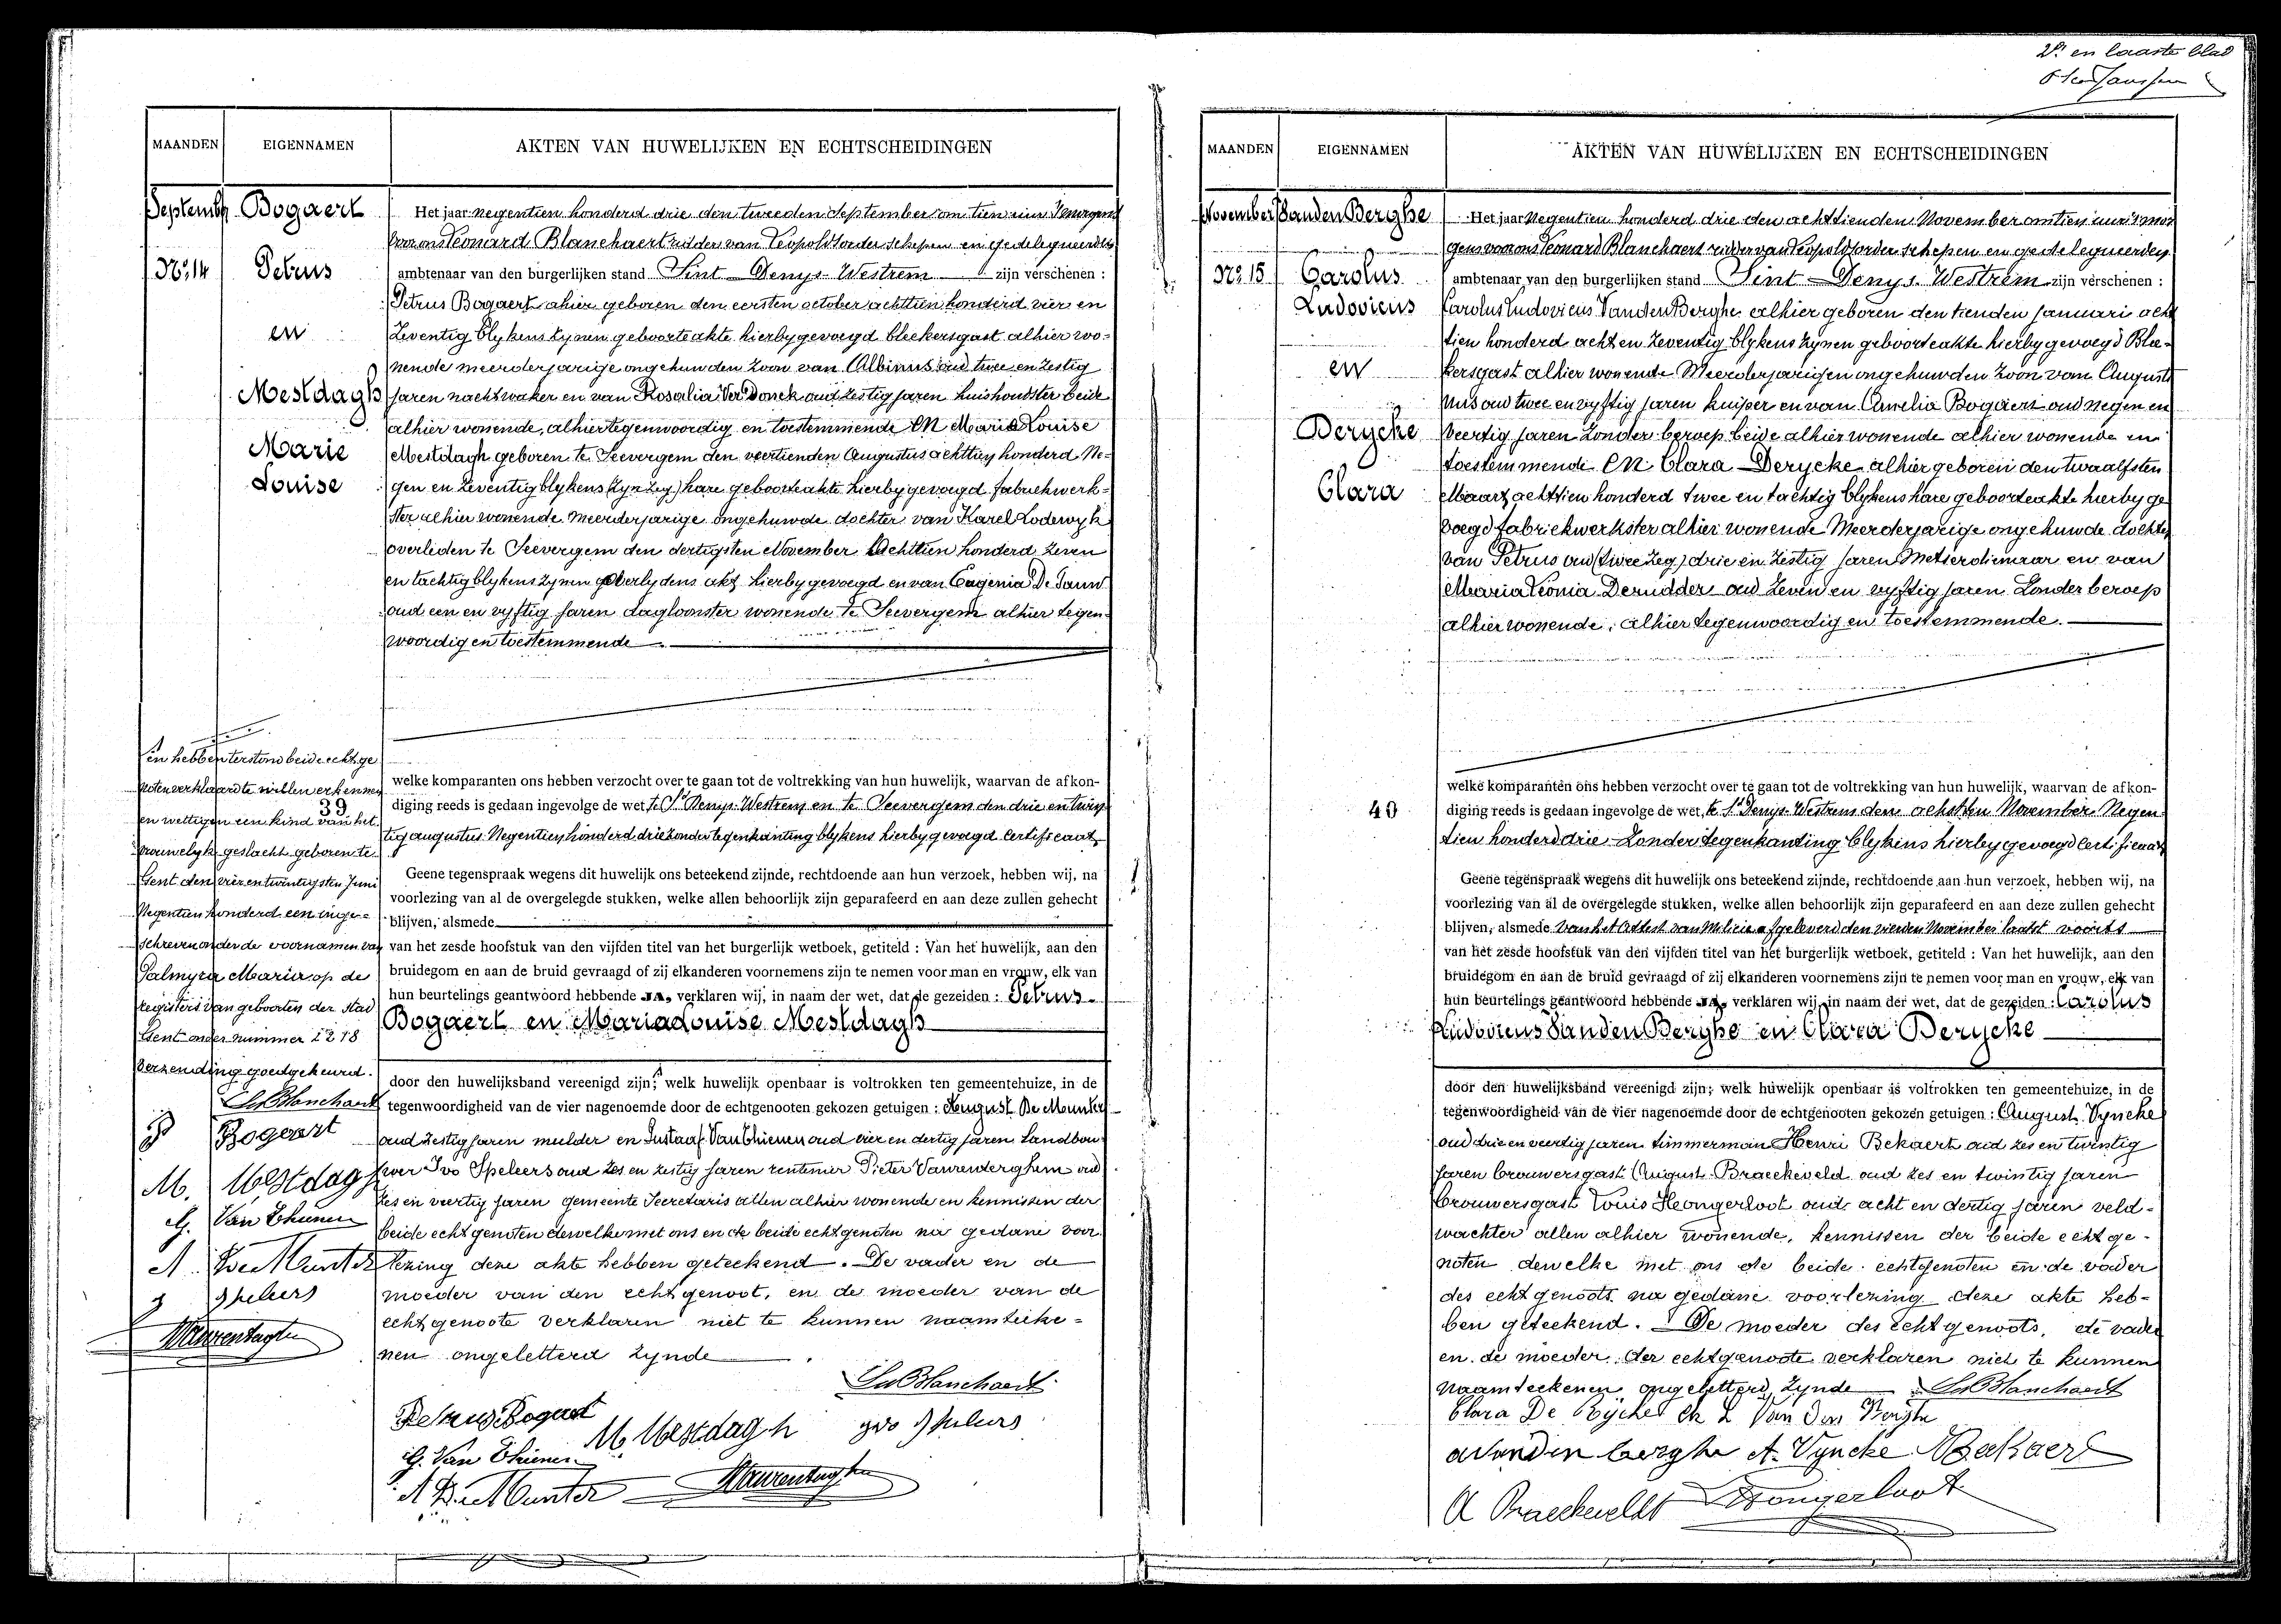 2e en laaste blad
MAANDEN EIGENNAMEN AKTEN VAN HUWELIJKEN EN ECHTSCHEIDINGEN
September Bogaert
No 14 Petrus
en
Mestdagh
Marie
Louise
Het jaar negentien honderd drie den tweeden September om tien uren 's morgens
voor ons Leonard Blanchaert ridder van Leopoldsorder schepen en gedelegueerden
ambtenaar van den burgerlijken stand Sint Denys-Westrem zijn verschenen :
Petrus Bogaert alhier geboren den eersten october achttien honderd vier en
zeventig blykens zynen geboorteakte hierbygevoegd bleekersgast alhier wo-
nende meerderjarige ongehuwden zoon van Albinus oud twee en zestig
jaren nachtwaker en van Rosalia Verdonck oud zestig jaren huishoudster beide
alhier wonende, alhier tegenwoordig en toestemmende EN Maria Louise
Mestdagh geboren te Seevergem den veertienden Augustus achttien honderd Ne-
gen en zeventig blykens (zyn zeg) hare geboorteakte hierby gevoegd fabriekwerk-
ster alhier wonende meerderjarige ongehuwde dochter van Karel Lodewyk
overleden te Seevergem den dertigsten November achttien honderd zeven
en tachtig blykens zynen overlydens akt hierby gevoegd en van Eugenia De Pauw
oud een en vyftig jaren dagloonster wonende te Seevergem alhier tegen-
woordig en toestemmende
welke komparanten ons hebben verzocht over te gaan tot de voltrekking van hun huwelijk, waarvan de afkon-
diging reeds is gedaan ingevolge de wet te St Denys-Westrem en te Seevergem den drie en twin-
tig augustus Negentien honderd drie zonder tegenkanting blykens hierby gevoegd certificaat
Geene tegenspraak wegens dit huwelijk ons beteekend zijnde, rechtdoende aan hun verzoek, hebben wij, na
voorlezing van al de overgelegde stukken, welke allen behoorlijk zijn geparafeerd en aan deze zullen gehecht
blijven, alsmede
van het zesde hoofstuk van den vijfden titel van het burgerlijk wetboek, getiteld : Van het huwelijk, aan den
bruidegom en aan de bruid gevraagd of zij elkanderen voornemens zijn te nemen voor man en vrouw, elk van
hun beurtelings geantwoord hebbende JA, verklaren wij, in naam der wet, dat de gezeiden : Petrus
Bogaert en Maria Louise Mestdagh
door den huwelijksband vereenigd zijn; welk huwelijk openbaar is voltrokken ten gemeentehuize, in de
tegenwoordigheid van de vier nagenoemde door de echtgenooten gekozen getuigen : August De Meunter
oud zestig jaren mulder en Gustaaf Van Thienen oud vier en dertig jaren Landbou-
wer Ivo Speleers oud zes en zestig jaren rentenier Pieter Vanrenterghem oud
zes en veertig jaren gemeente Secretaris allen alhier wonende en kennissen der
beide echtgenoten dewelke met ons en de beide echtgenoten na gedane voor
lezing deze akte hebben geteekend. De vader en de
moeder van den echtgenoot, en de moeder van de
echtgenoote verklaren niet te kunnen naamteeke-
nen ongeletterd zynde
Ld Blanchaert
Petrus Bogaert
M. Mestdagh ivo Speleers
G. Van Thienen
A De Munter
Vanrenterghem
en hebben terstond beide echtge
noten verklaard te willen erkennen
39
en wettigen een kind van het
vrouwelyk geslacht geboren te
Gent den vier en twintigsten Juni
Negentien honderd een inge-
schreven onder de voornamen van
Palmyra Maria op de
registers van geboorten der stad
Gent onder nummer 2218
Verzending goedgekeurd.
Ld Blanchaert
P Bogaert
M. Mestdagh
G. Van Thienen
A. De Munter
I Speleers
Vanrenterghem
MAANDEN EIGENNAMEN AKTEN VAN HUWELIJKEN EN ECHTSCHEIDINGEN
November Vanden Berghe
No 15 Carolus
Ludovicus
en
Derycke
Clara
40
Het jaar Negentien honderd drie den achttienden November om tien uren 's mor
gens voor ons Leonard Blanchaert ridder van Leopoldsorder schepen en gedelegueerden
ambtenaar van den burgerlijken stand Sint Denys-Westrem zijn verschenen :
Carolus Ludovicus Vanden Berghe alhier geboren den tienden Januari ach
tien honderd acht en zeventig blykens zynen geboorteakte hierby gevoegd Blee-
kersgast alhier wonende Meerderjarigen ongehuwden zoon van Augusti
nus oud twee en vyftig jaren kuiper en van Amelia Bogaert oud negen en
Veertig jaren zonder beroep beide alhier wonende alhier wonende en
toestemmende EN Clara Derycke alhier geboren den twaalfsten
Maart achttien honderd twee en tachtig blykens hare geboorteakte hierby ge
voegd fabriekwerkster alhier wonende Meerderjarige ongehuwde dochter
van Petrus oud (twee zeg) drie en zestig jaren Metserdienaar en van
Maria Leonia Derudder oud zeven en vyftig jaren Zonder beroep
alhier wonende, alhier tegenwoordig en toestemmende.
welke komparanten ons hebben verzocht over te gaan tot de voltrekking van hun huwelijk, waarvan de afkon-
diging reeds is gedaan ingevolge de wet, te St Denys-Westrem den achtsten November Negen
tien honderd drie Zonder tegenkanting blykens hierby gevoegd certificaat
Geene tegenspraak wegens dit huwelijk ons beteekend zijnde, rechtdoende aan hun verzoek, hebben wij, na
voorlezing van al de overgelegde stukken, welke allen behoorlijk zijn geparafeerd en aan deze zullen gehecht
blijven, alsmede van het Attest van Milicie afgeleverd den vierden November laatst voorts
van het zesde hoofstuk van den vijfden titel van het burgerlijk wetboek, getiteld : Van het huwelijk, aan den
bruidegom en aan de bruid gevraagd of zij elkanderen voornemens zijn te nemen voor man en vrouw, elk van
hun beurtelings geantwoord hebbende JA, verklaren wij, in naam der wet, dat de gezeiden : Carolus
Ludovicus Vanden Berghe en Clara Derycke
door den huwelijksband vereenigd zijn; welk huwelijk openbaar is voltrokken ten gemeentehuize, in de
tegenwoordigheid van de vier nagenoemde door de echtgenooten gekozen getuigen : August Vyncke
oud drie en veertig jaren timmerman Henri Bekaert oud zes en twintig
jaren brouwersgast August Braeckeveld oud zes en twintig jaren
brouwersgast Louis Hongerloot oud acht en dertig jaren veld-
wachter allen alhier wonende, kennissen der beide echtge-
noten dewelke met ons de beide echtgenoten en de vader
des echtgenoots na gedane voorlezing deze akte heb-
ben geteekend. De moeder des echtgenoots, de vader
en de moeder der echtgenoote verklaren niet te kunnen
naamteekenen ongeletterd zynde Ld Blanchaert
Clara De Rycke Ch L Van Den Berghe
a vanden berghe A. Vyncke H Bekaert
A Braeckeveldt Hongerloot